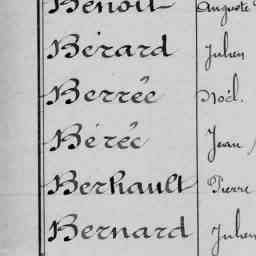 Benoit Auguste
Bérard Julien
Berrée Noël.
Béréc Jean
Berhault Pierre
Bernard Julien